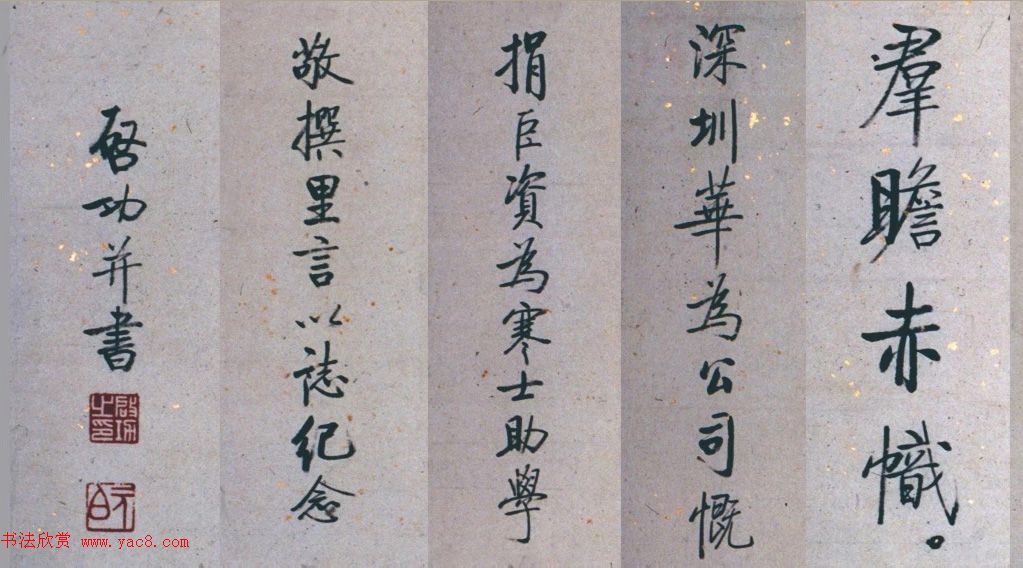 羣瞻赤幟。
深圳華為公司慨
捐巨資為寒士助學
敬撰里言以誌紀念
啓功并書
啟功之印
书法欣赏 www.yac8.com